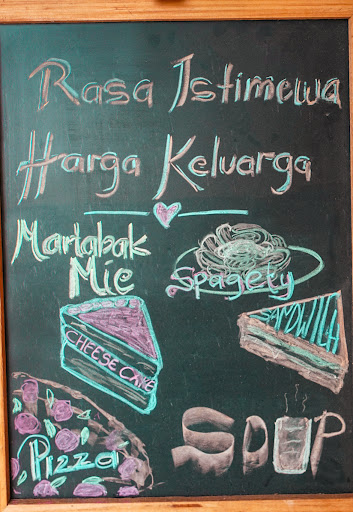 Rasa Istimewa
Harga Keluarga
Martabak
Mie
Spagety
CHEESE CAKE
SANDWICH
Pizza
SOUP